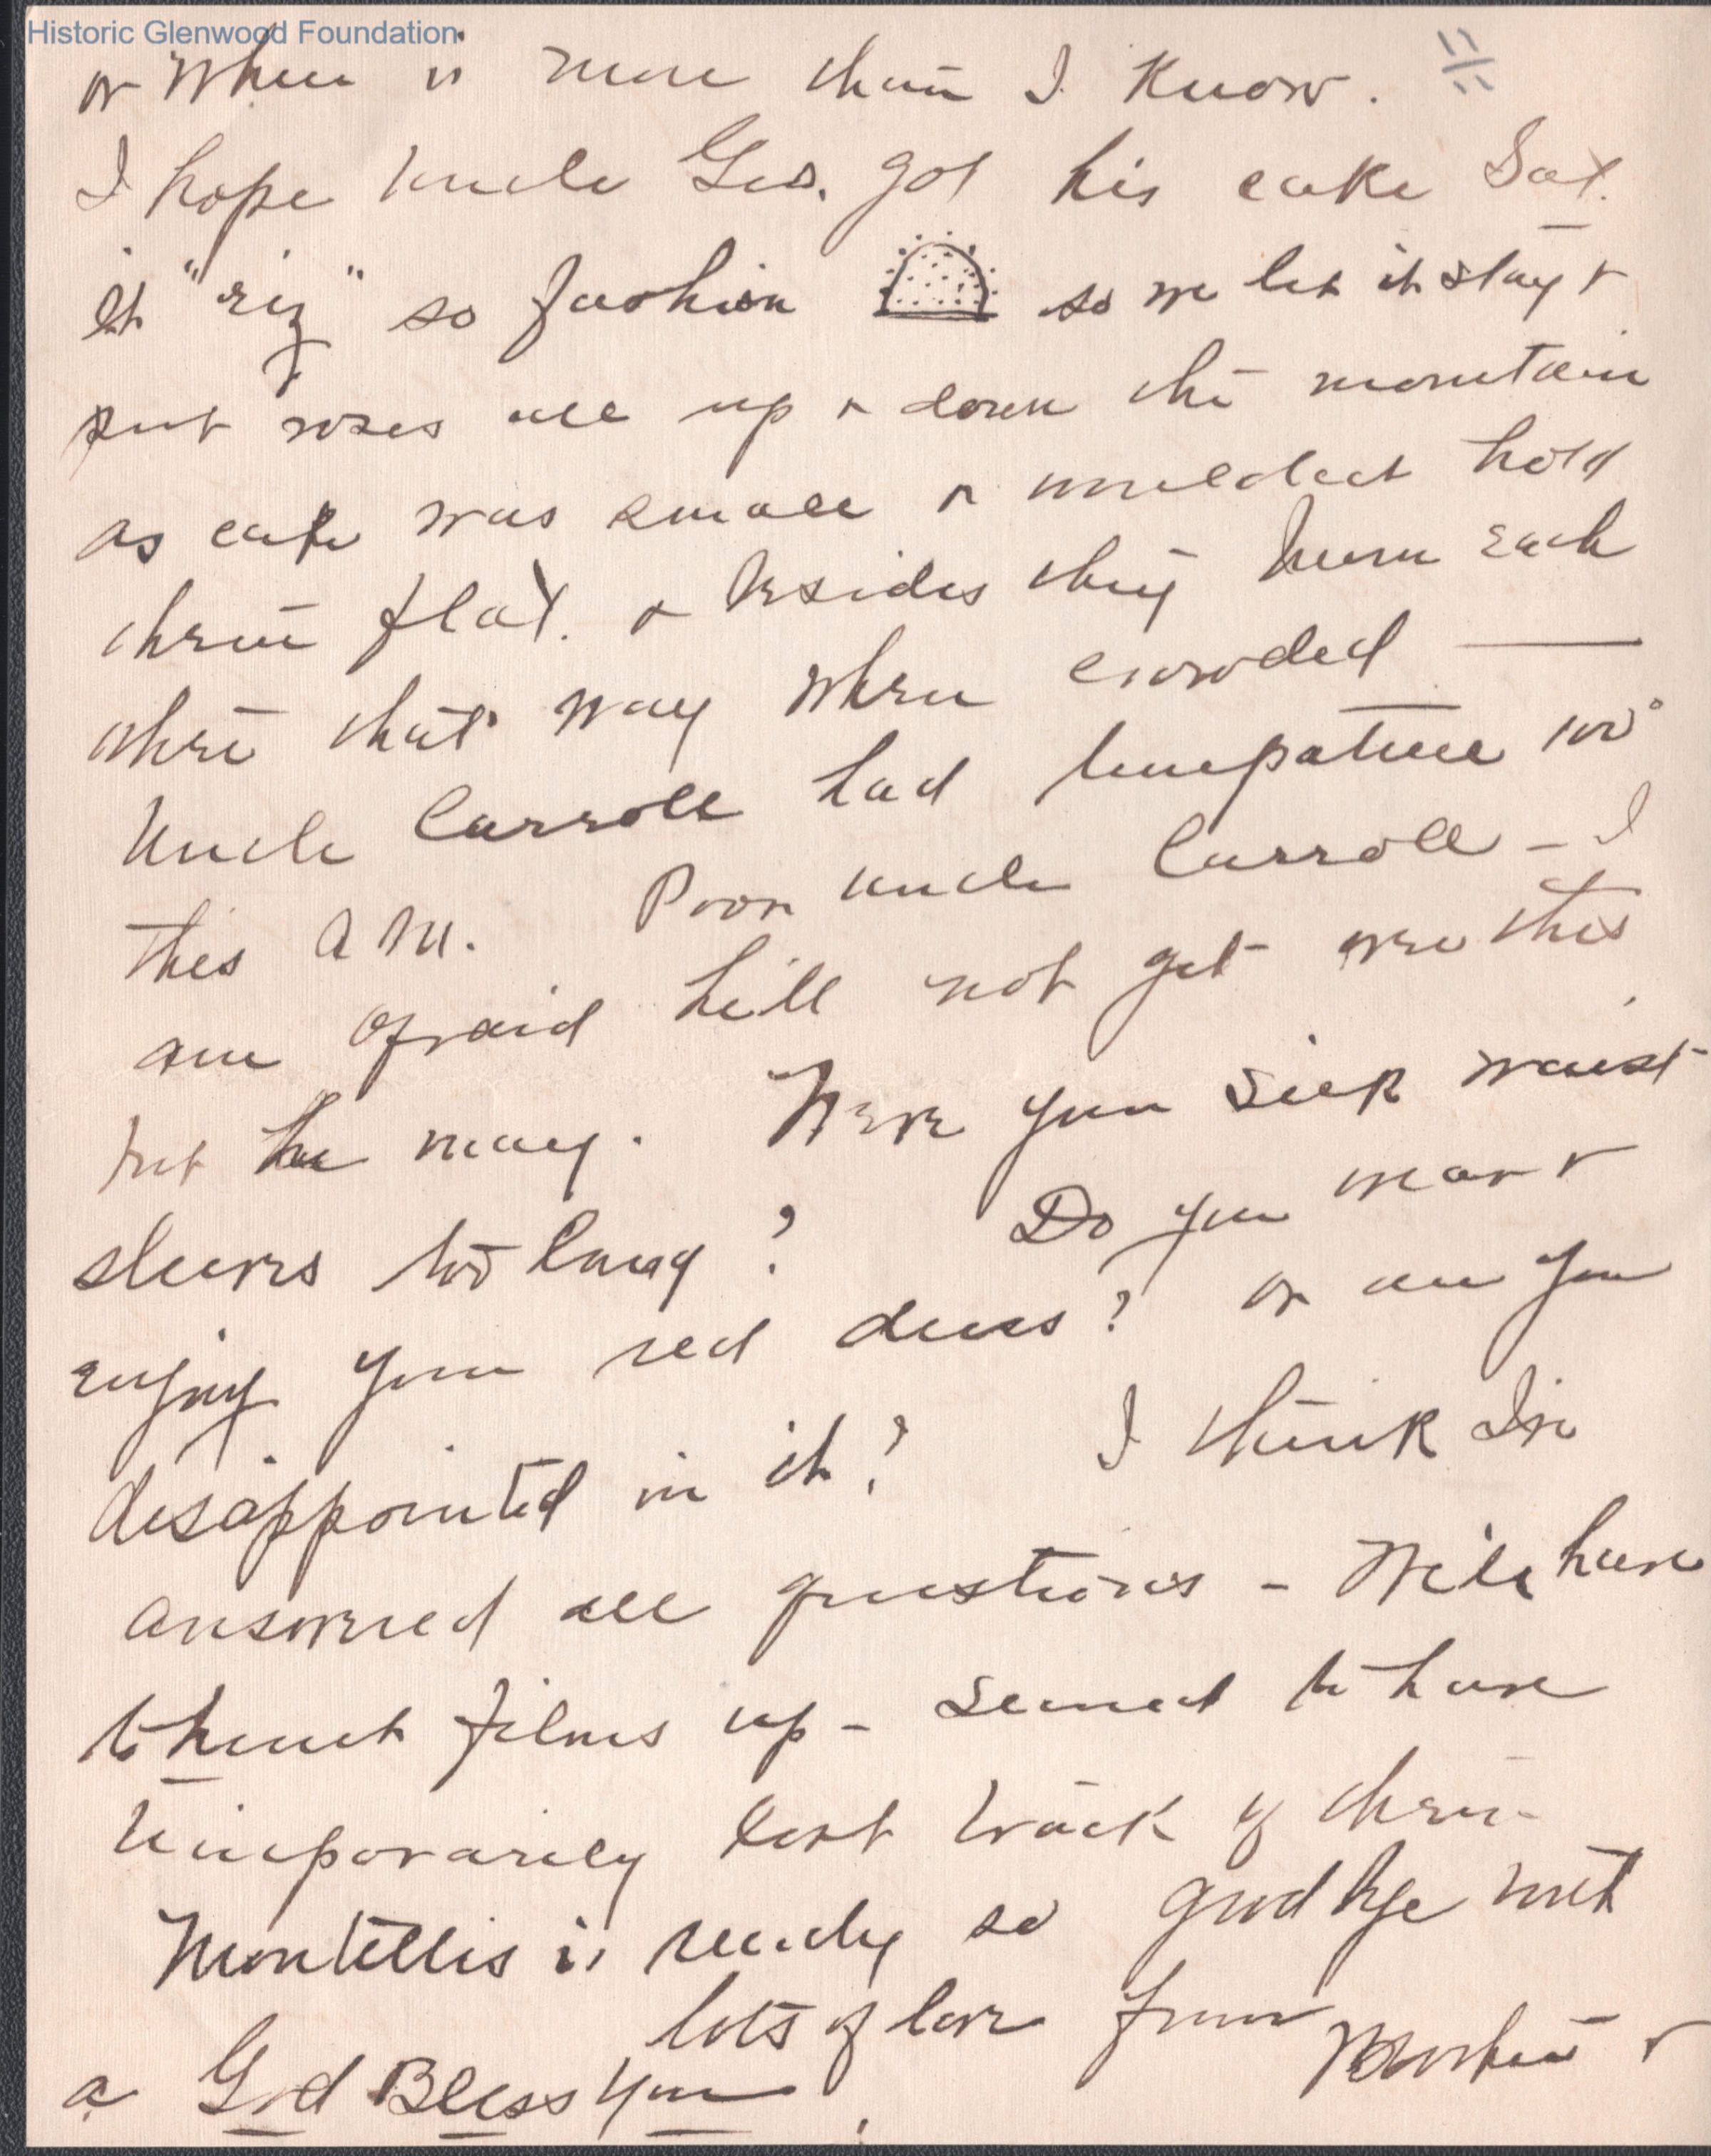 Historic Glenwood Foundation
or when is more than I know.
I hope Uncle Geo. got his cake Sat.
it "riz" so fashion so we let it stay &
put roses all up & down the mountain
as cake was small & wouldnt hold
them flat. & besides they burn each
other that way when crowded —
Uncle Carroll had tempature 100°
this A M. Poor uncle Carroll - I
am afraid he'll not get over this
but he may. Were your silk waist
sleeves too long? Do you wear &
enjoy your red dress? or are you
disappointed in it? I think I've
answered all questions - Will have
to hunt films up - seemed to have
temporarily lost track of them
Montellis is ready so good bye with
lots of love from Mother &
a God Bless You